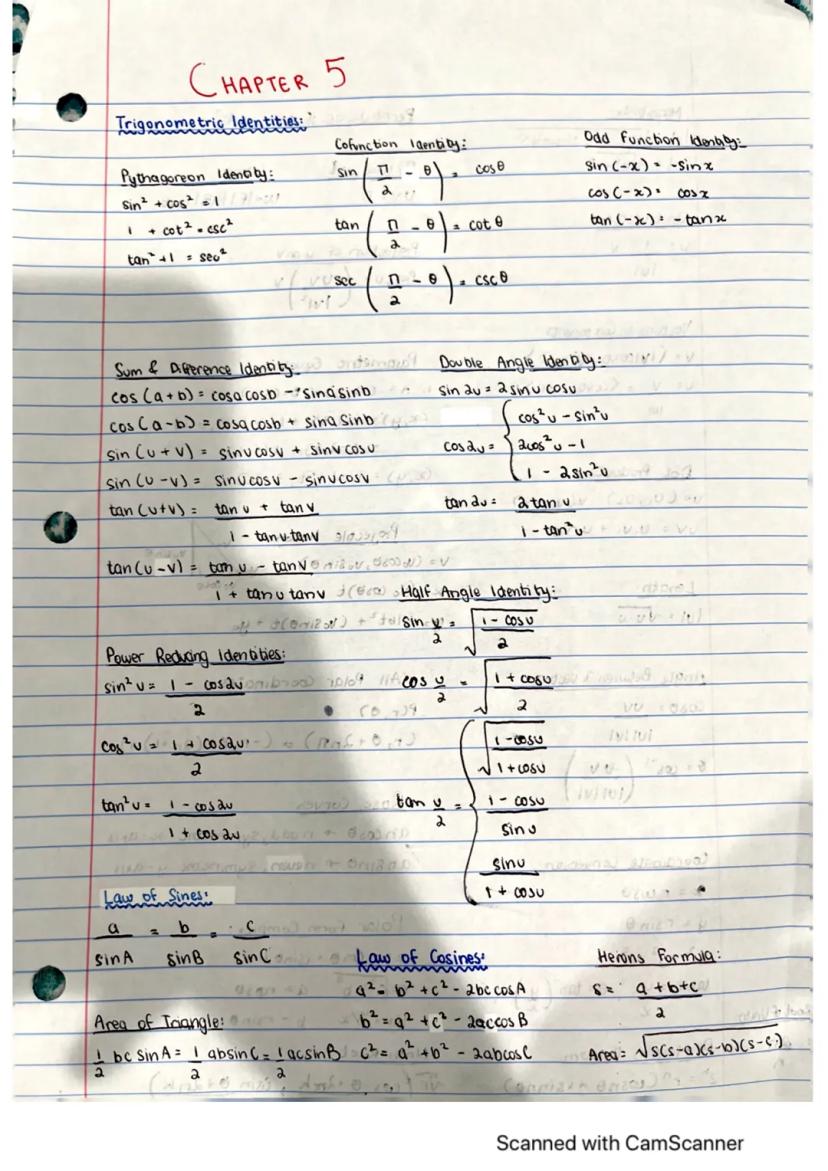 CHAPTER 5
Trigonometric Identities:
Pythagorean Identity:
sin² + cos² = 1
1 + cot² = csc²
tan² + 1 = sec²
Cofunction Identity:
sin (π/2 - θ) = cosθ
tan (π/2 - θ) = cot θ
sec (π/2 - θ) = cscθ
Odd Function Identity:
sin(-x) = -sinx
cos(-x) = cosx
tan(-x) = -tanx
Sum & Difference Identity:
cos (a+b) = cosacosb - sinasinb
cos (a-b) = cosacosb + sinasinb
sin (u + v) = sinucosv + sinvcosu
sin (u - v) = sinucosv - sinucosv
tan (u+v) = tan u + tan v / 1 - tanutanv
tan(u-v) = tan u - tanv / 1 + tanutanv
Double Angle Identity:
sin 2u = 2sinucosu
cos2u = { cos²u - sin²u
2cos²u - 1
1 - 2sin²u
tan2u = 2tan u / 1 - tan²u
Half Angle Identity:
sin u/2 = √(1 - cosu / 2)
cos u/2 = √(1 + cosu / 2)
tan u/2 = { √(1 - cosu / 1 + cosu)
1 - cosu / sin u
sinu / 1 + cosu
Power Reducing Identities:
sin²u = 1 - cos2u / 2
cos²u = 1 + cos2u / 2
tan²u = 1 - cos2u / 1 + cos2u
Law of Sines:
a/sinA = b/sinB = c/sinC
Area of Triangle:
1/2 bcsinA = 1/2 absinC = 1/2 acsinB
Law of Cosines:
a² = b² + c² - 2bccosA
b² = a² + c² - 2accosB
c² = a² + b² - 2abcosC
Herons Formula:
s = a+b+c / 2
Area = √s(s-a)(s-b)(s-c)
Scanned with CamScanner